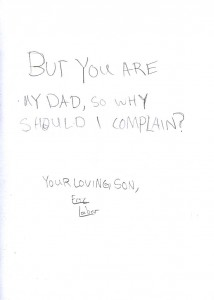 BUT YOU ARE
MY DAD, SO WHY
SHOULD I COMPLAIN?
YOUR LOVING SON,
Labor